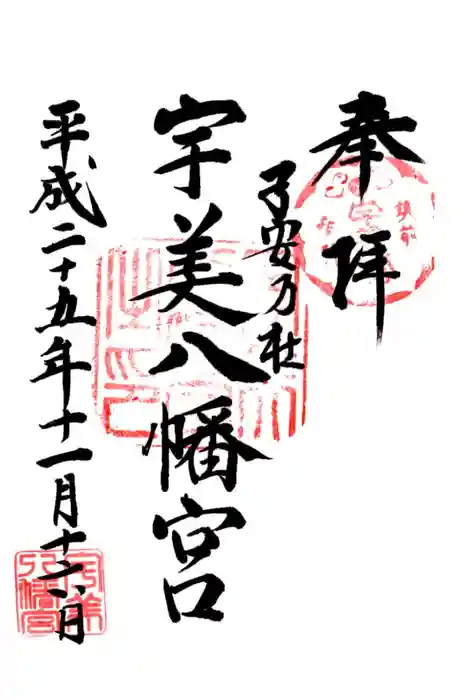 奉拝
子安乃杜
宇美八幡宮
平成二十五年十一月十六日
宇美八幡宮